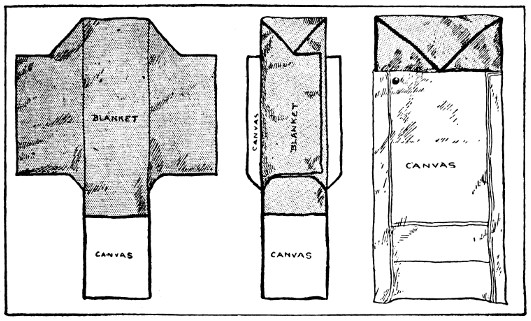 BLANKET
CANVAS
CANVAS
BLANKET
CANVAS
CANVAS